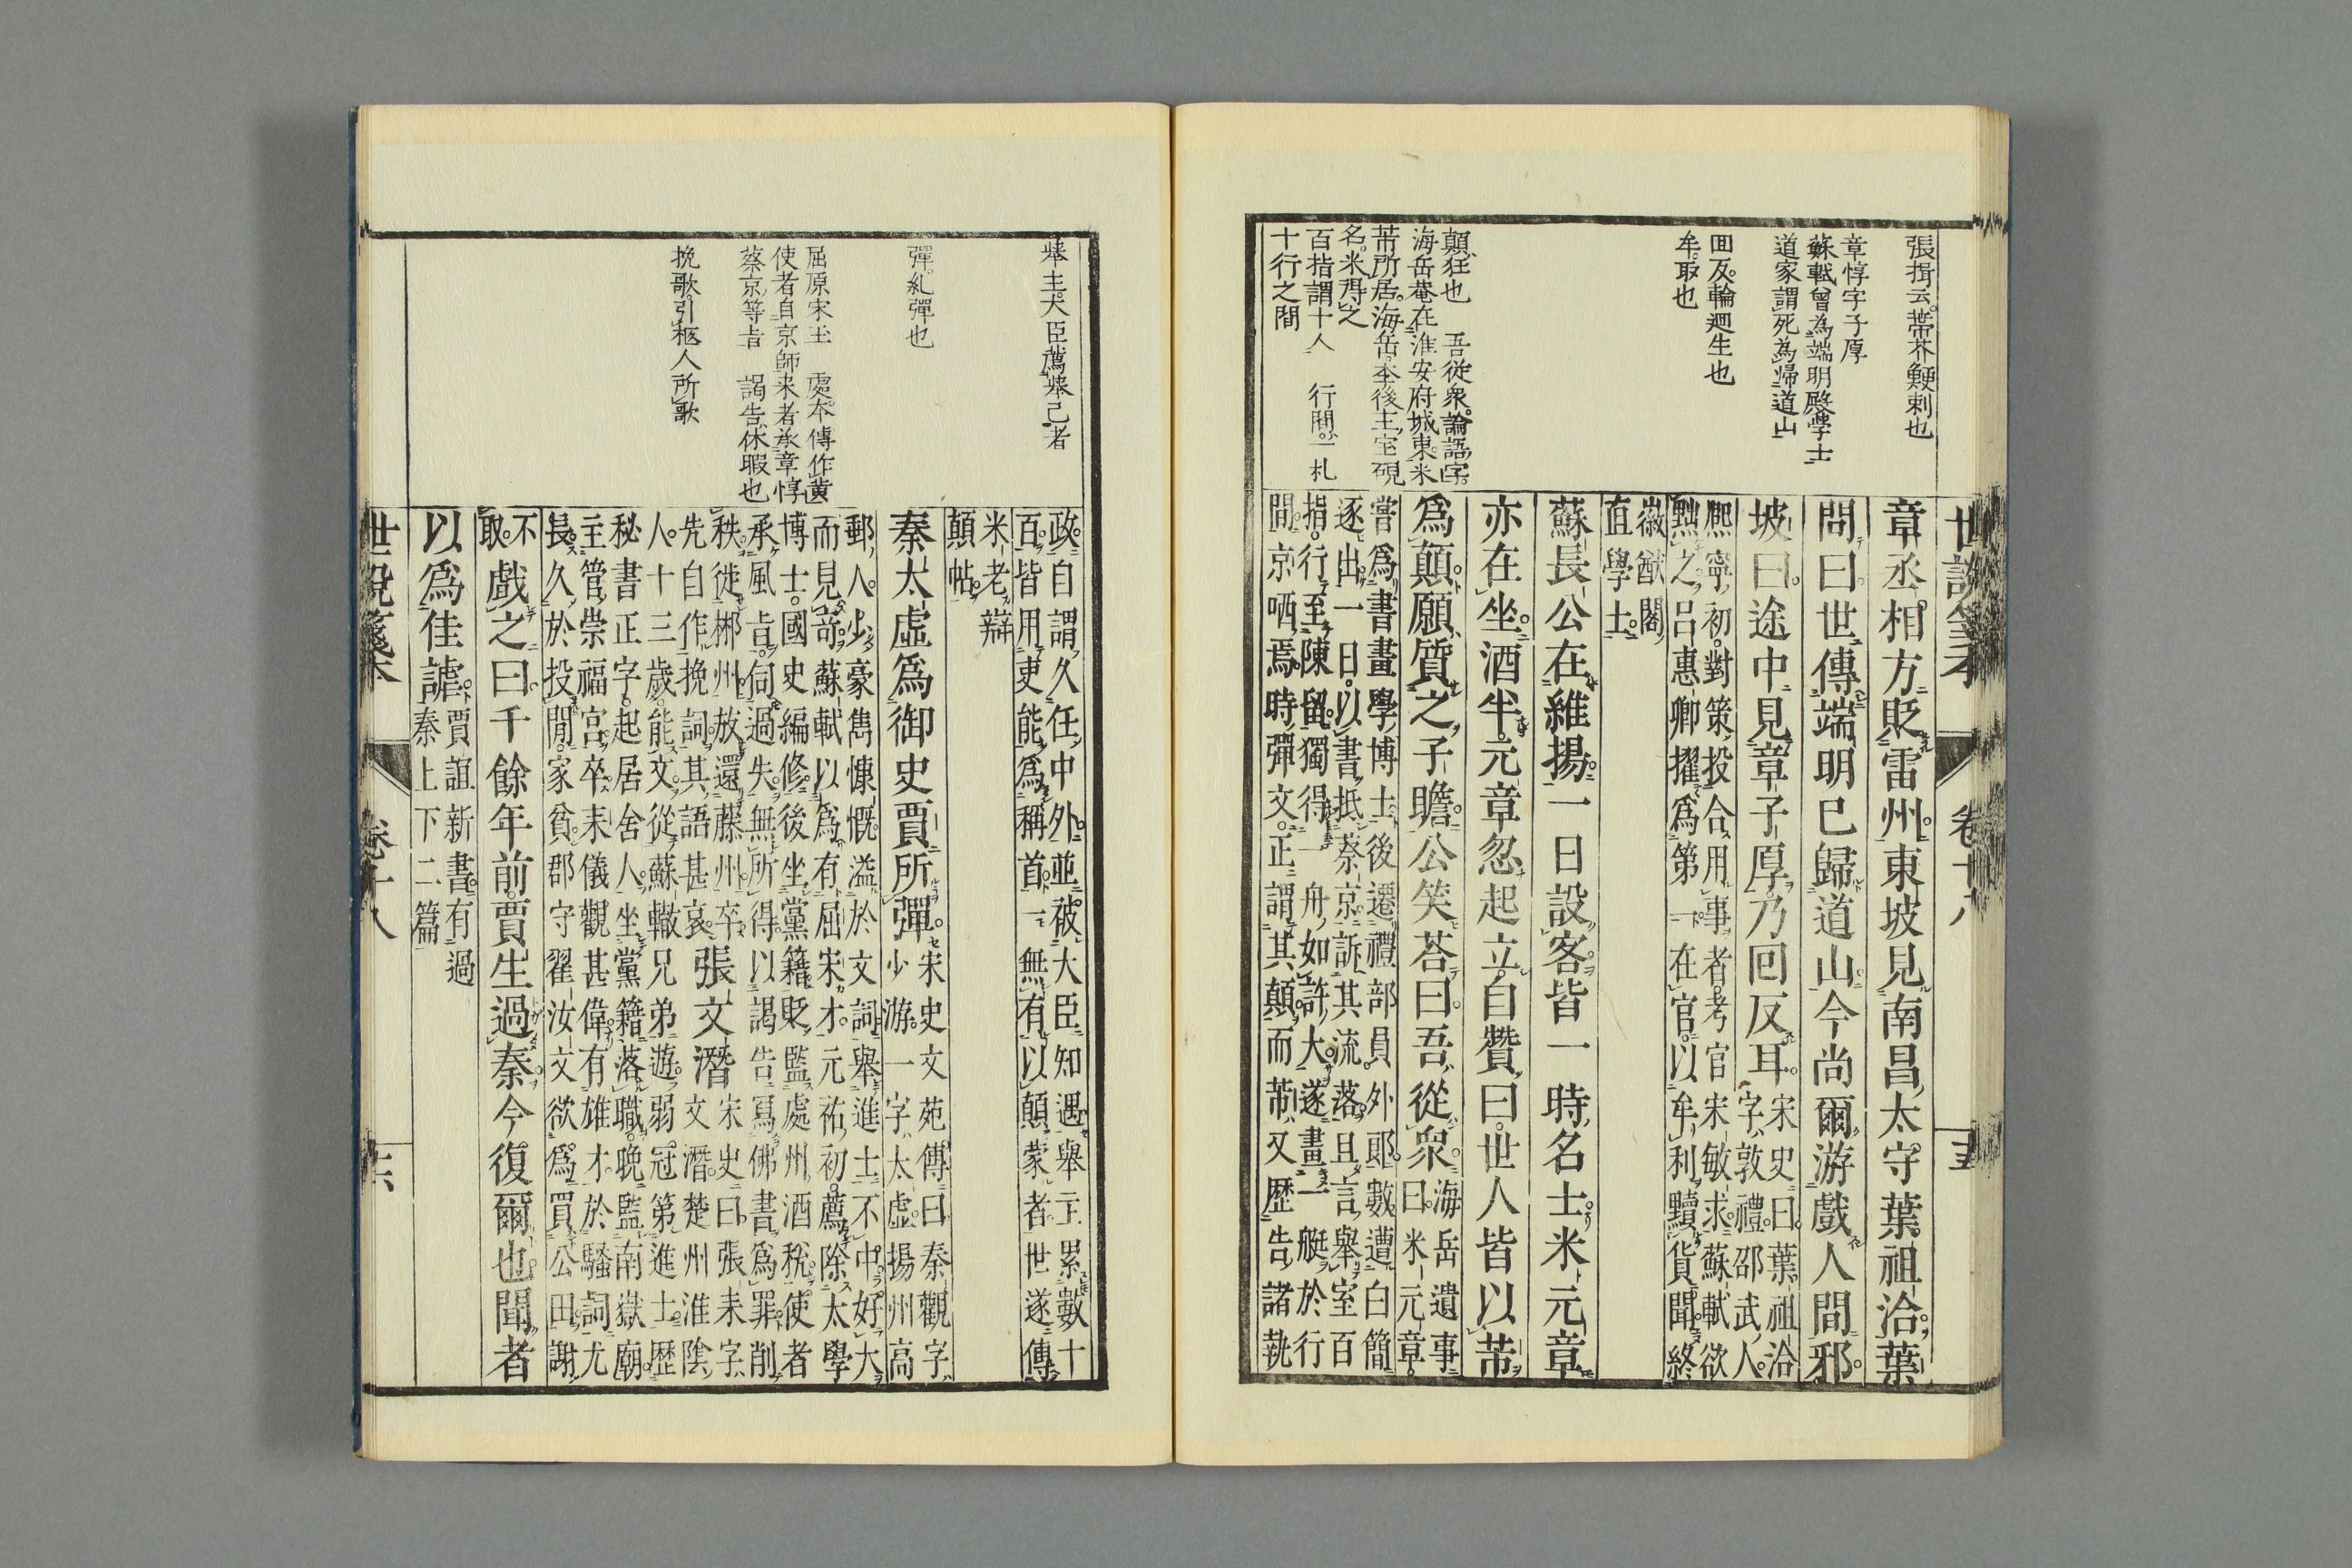 張揖云。蔕芥鯁刺也
章惇字子厚
蘇軾曾為端明殿學士
道家謂死為歸道山
囬反輪廻生也
牟。取也
顛狂也　吾從衆。論語字。
海岳菴在淮安府城東。米
芾所居。海岳李後主宝硯
名。米得之
百指謂十人　行間。一札
十行之間
世說箋本　卷十八　十五
章丞相方貶雷州。東坡見南昌太守葉祖洽。葉
問曰。世傳端明已歸道山。今尚爾游戲人間邪。
坡曰。途中見章子厚。乃回反耳。宋史曰。葉祖洽
字敦禮。邵武人。
熈寧初。對策。投合用事者。考官宋敏求蘇軾欲
黜之。呂惠卿擢爲第一。在官以牟利黷貨聞。終
徽猷閣
直學士。
蘇長公在維揚。一日設客。皆一時名士。米元章
亦在坐。酒半。元章忽起立。自贊曰。世人皆以芾
爲顛。願質之子瞻。公笑荅曰。吾從衆。海岳遺事
曰。米元章。
嘗爲書畫學博士。後遷禮部員外郎。數遭白簡
逐出。一日以書抵蔡京。訴其流落。且言舉室百
指。行至陳留。獨得一舟如許大。遂畫一艇於行
間。京哂焉。時彈文。正謂其顛。而芾又歷告諸執
政。自謂久任中外。並被大臣知遇。舉主累數十
百。皆用吏能爲稱首。一無有以顛蒙者。世遂傳
米老辯
顛帖。
秦太虛爲御史賈所彈。宋史文苑傳曰。秦觀字
少游。一字太虛。揚州高
郵人。少豪雋慷慨。溢於文詞。舉進士不中。好大
而見奇。蘇軾以爲有屈宋才。元祐初。薦除太學
博士。國史編修。後坐黨籍貶監處州酒稅。使者
承風旨。伺過失。無所得。以謁告寫佛書爲罪。削
秩徙郴州。放還藤州卒。張文潛宋史曰。張耒字
先自作挽詞。其語甚哀。文潛。楚州淮陰
人。十三歲能文。從蘇轍兄弟遊。弱冠第進士。歷
秘書正字。起居舍人。坐黨籍落職。晚監南嶽廟。
主管崇福宮。卒。耒儀觀甚偉。有雄才。於騷詞尤
長。久於投閒。家貧。郡守翟汝文欲爲買公田。謝
不
取。戲之曰。千餘年前。賈生過秦。今復爾也。聞者
以爲佳謔。賈誼新書。有過
秦上下二篇
舉主。大臣薦舉己者
彈。糺彈也
屈原宋玉　處本傳作黄
使者自京師来者承章惇
蔡京等旨　謁告休暇也
挽歌引柩人所歌
世說箋本　卷十八　十六